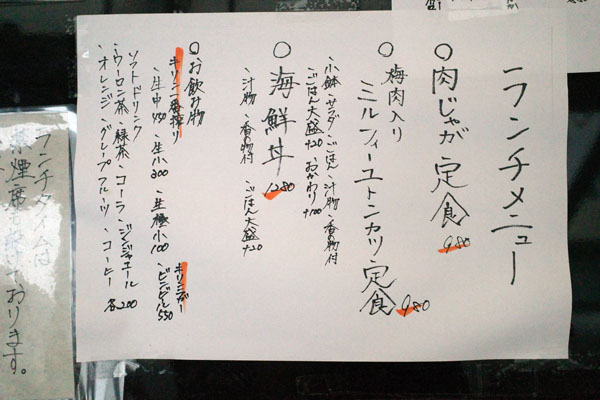 ランチメニュー
○肉じゃが定食 980
○梅肉入り
ミルフィーユトンカツ定食 980
・小鉢・サラダ・ごはん・汁物・香の物付
・ごはん大盛+20 おかわり+100
○海鮮丼 1280
・汁物・香の物付 ・ごはん大盛+20
○お飲み物
キリン一番搾り キリンラガー
・生中450 ・生小300 ・生極小100 ・ビンビール550
ソフトドリンク
・ウーロン茶・緑茶・コーラ・ジンジャエール
・オレンジ・グレープフルーツ・コーヒー 各200
ランチタイムは
禁煙席
ております。